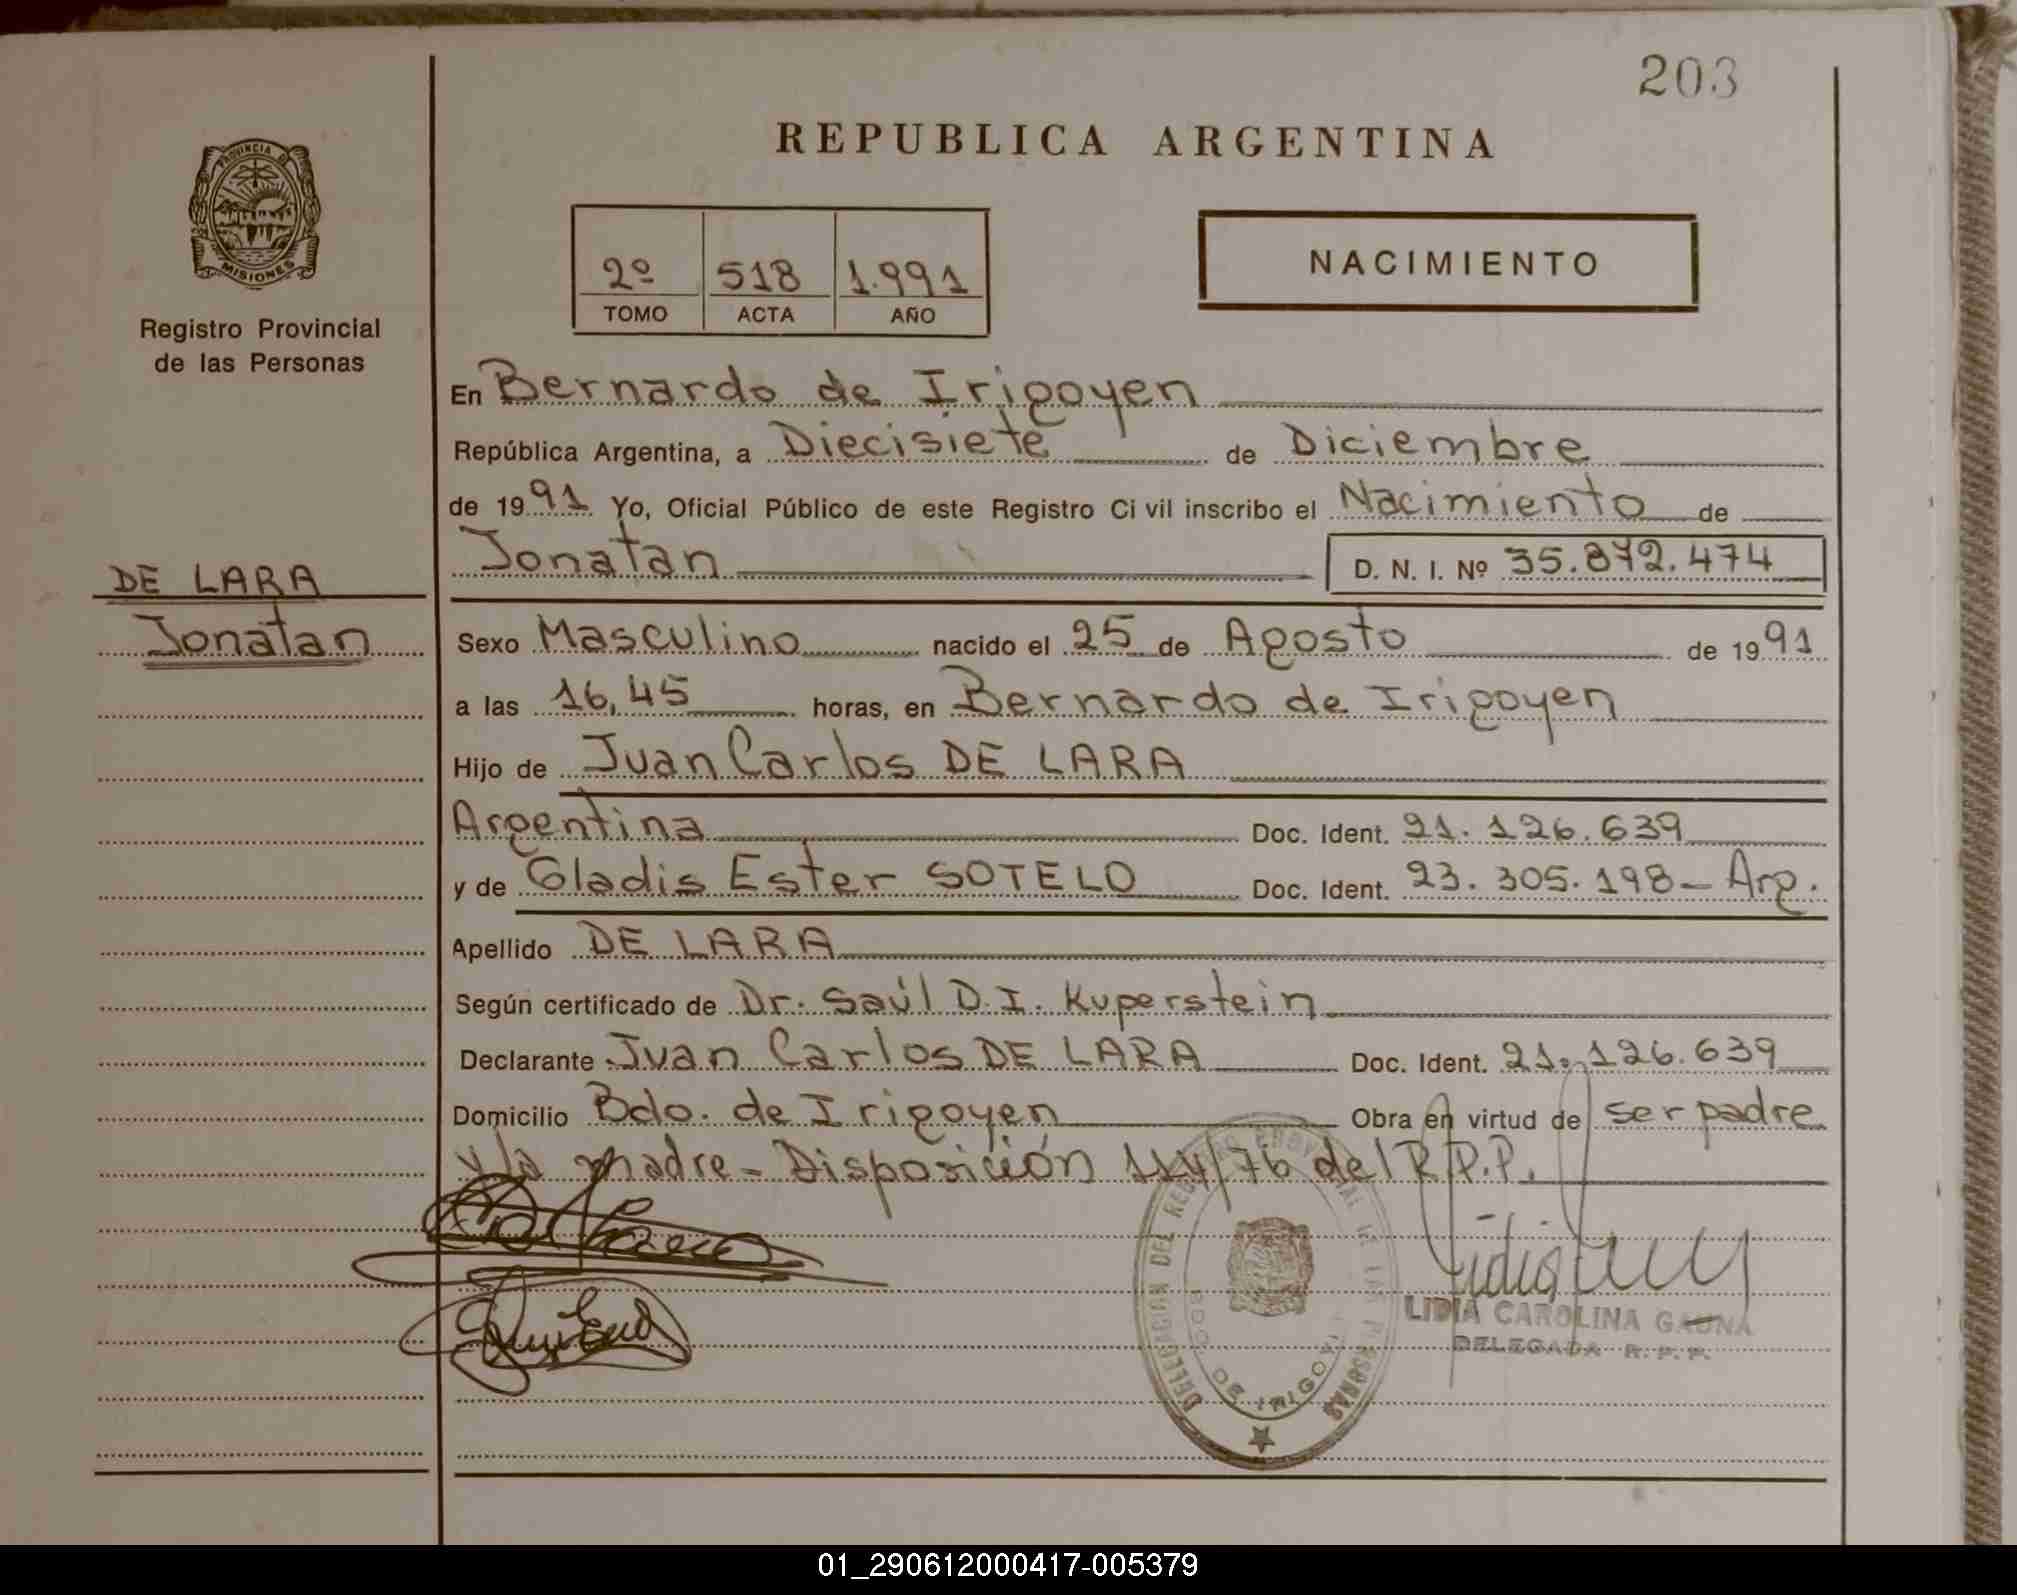 203
REPUBLICA ARGENTINA
PROVINCIA DE
MISIONES
Registro Provincial
de las Personas
2º 518 1.991
TOMO ACTA AÑO
NACIMIENTO
En Bernardo de Irigoyen
República Argentina, a Diecisiete de Diciembre
de 1991 Yo, Oficial Público de este Registro Ci vil inscribo el Nacimiento de
Jonatan D. N. I. Nº 35.872.474
DE LARA
Jonatan
Sexo Masculino nacido el 25 de Agosto de 1991
a las 16,45 horas, en Bernardo de Irigoyen
Hijo de Juan Carlos DE LARA
Argentina Doc. Ident. 21.126.639
y de Gladis Ester SOTELO Doc. Ident. 23.305.198- Arg.
Apellido DE LARA
Según certificado de Dr. Saúl D.I. Kuperstein
Declarante Juan Carlos DE LARA Doc. Ident. 21.126.639
Domicilio Bdo. de Irigoyen Obra en virtud de ser padre
y la madre - Disposición 114/76 del R.P.P.
DELEGACION DEL REGISTRO PROVINCIAL DE LAS PERSONAS
BDO. DE IRIGOYEN
LIDIA CAROLINA GAUNA
DELEGADA R.P.P.
01_290612000417-005379